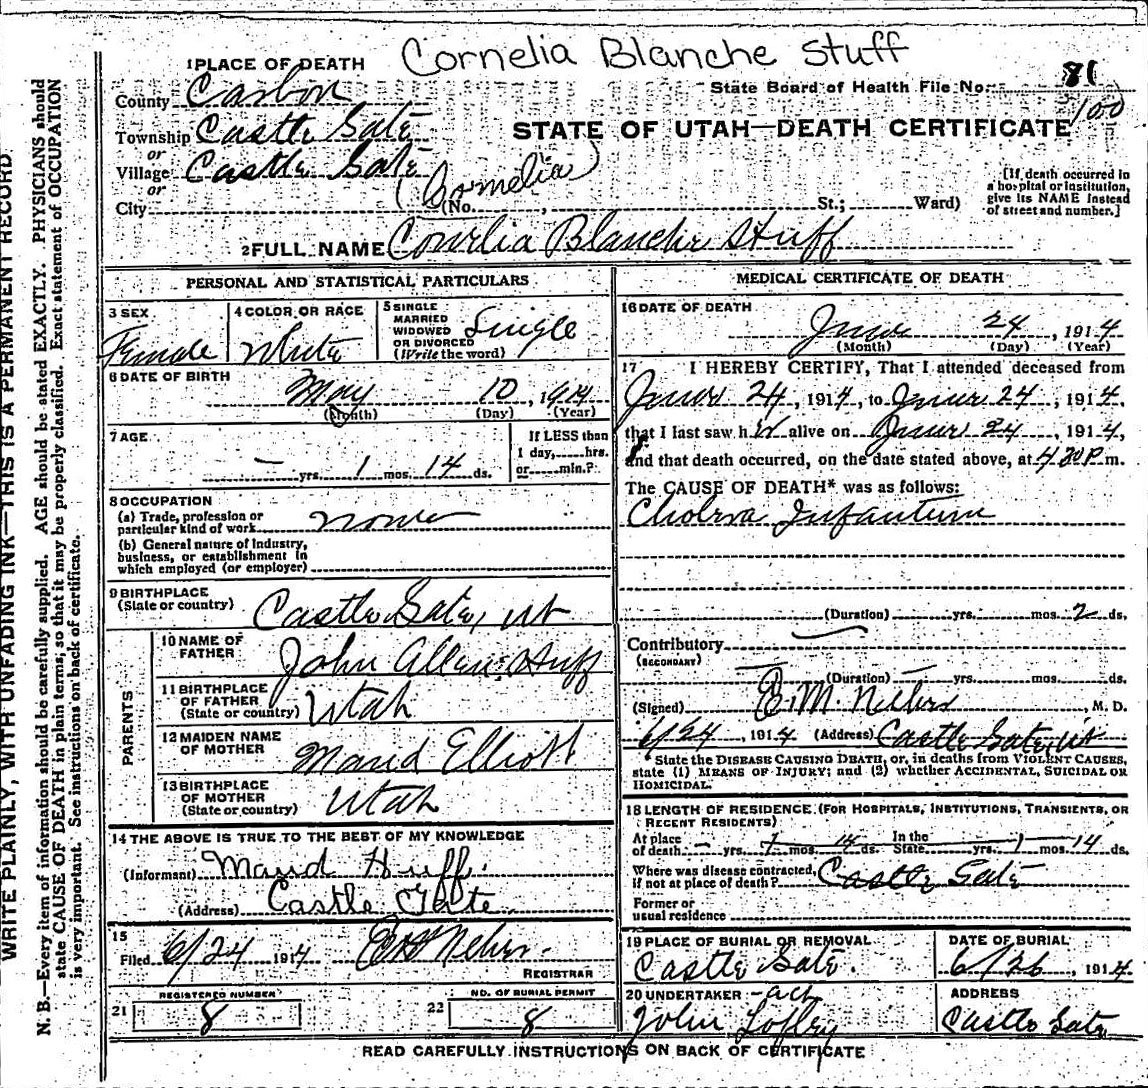 Cornelia Blanche Stuff
1 PLACE OF DEATH
County Carbon
State Board of Health File No. 81
100
Township Castle Gate
STATE OF UTAH—DEATH CERTIFICATE
or
Village Castle Gate
or
(Cornelia)
City (No. , St.; Ward)
[If death occurred in
a hospital or institution,
give its NAME instead
of street and number.]
2 FULL NAME Conelia Blanche Huff
PERSONAL AND STATISTICAL PARTICULARS
3 SEX
Female
4 COLOR OR RACE
White
5 SINGLE
MARRIED
WIDOWED
OR DIVORCED
(Write the word)
Single
6 DATE OF BIRTH
May 10, 1914
(Month) (Day) (Year)
7 AGE
— yrs. 1 mos. 14 ds.
If LESS than
1 day, hrs.
or min.?
8 OCCUPATION
(a) Trade, profession or
particular kind of work None
(b) General nature of industry,
business, or establishment in
which employed (or employer)
9 BIRTHPLACE
(State or country) Castle Gate, Ut
PARENTS
10 NAME OF
FATHER
John Allen Huff
11 BIRTHPLACE
OF FATHER
(State or country) Utah
12 MAIDEN NAME
OF MOTHER
Maud Elliott
13 BIRTHPLACE
OF MOTHER
(State or country) Utah
14 THE ABOVE IS TRUE TO THE BEST OF MY KNOWLEDGE
(Informant) Maud Huff.
(Address) Castle Gate
15
Filed 6/24 1914
REGISTRAR
REGISTERED NUMBER
21 8
NO. OF BURIAL PERMIT
22 8
MEDICAL CERTIFICATE OF DEATH
16 DATE OF DEATH
June 24, 1914
(Month) (Day) (Year)
17 I HEREBY CERTIFY, That I attended deceased from
June 24, 1914, to June 24, 1914,
that I last saw her alive on June 24, 1914,
and that death occurred, on the date stated above, at 4 30 P.m.
The CAUSE OF DEATH* was as follows:
Cholera Infantum
(Duration) yrs. mos. 2 ds.
Contributory
(SECONDARY)
(Duration) yrs. mos. ds.
(Signed) E. M. , M. D.
6/24, 1914 (Address) Castle Gate, Ut
* State the DISEASE CAUSING DEATH, or, in deaths from VIOLENT CAUSES,
state (1) MEANS OF INJURY; and (2) whether ACCIDENTAL, SUICIDAL OR
HOMICIDAL.
18 LENGTH OF RESIDENCE (FOR HOSPITALS, INSTITUTIONS, TRANSIENTS, OR
RECENT RESIDENTS)
At place
of death — yrs. 1 mos. 14 ds. In the
State yrs. 1 mos. 14 ds.
Where was disease contracted,
if not at place of death? Castle Gate
Former or
usual residence
19 PLACE OF BURIAL OR REMOVAL
Castle Gate.
DATE OF BURIAL
6/26, 1914
20 UNDERTAKER
John
ADDRESS
Castle Gate
READ CAREFULLY INSTRUCTIONS ON BACK OF CERTIFICATE
WRITE PLAINLY, WITH UNFADING INK—THIS IS A PERMANENT RECORD
N. B.—Every item of information should be carefully supplied. AGE should be stated EXACTLY. PHYSICIANS should
state CAUSE OF DEATH in plain terms, so that it may be properly classified. Exact statement of OCCUPATION
is very important. See instructions on back of certificate.